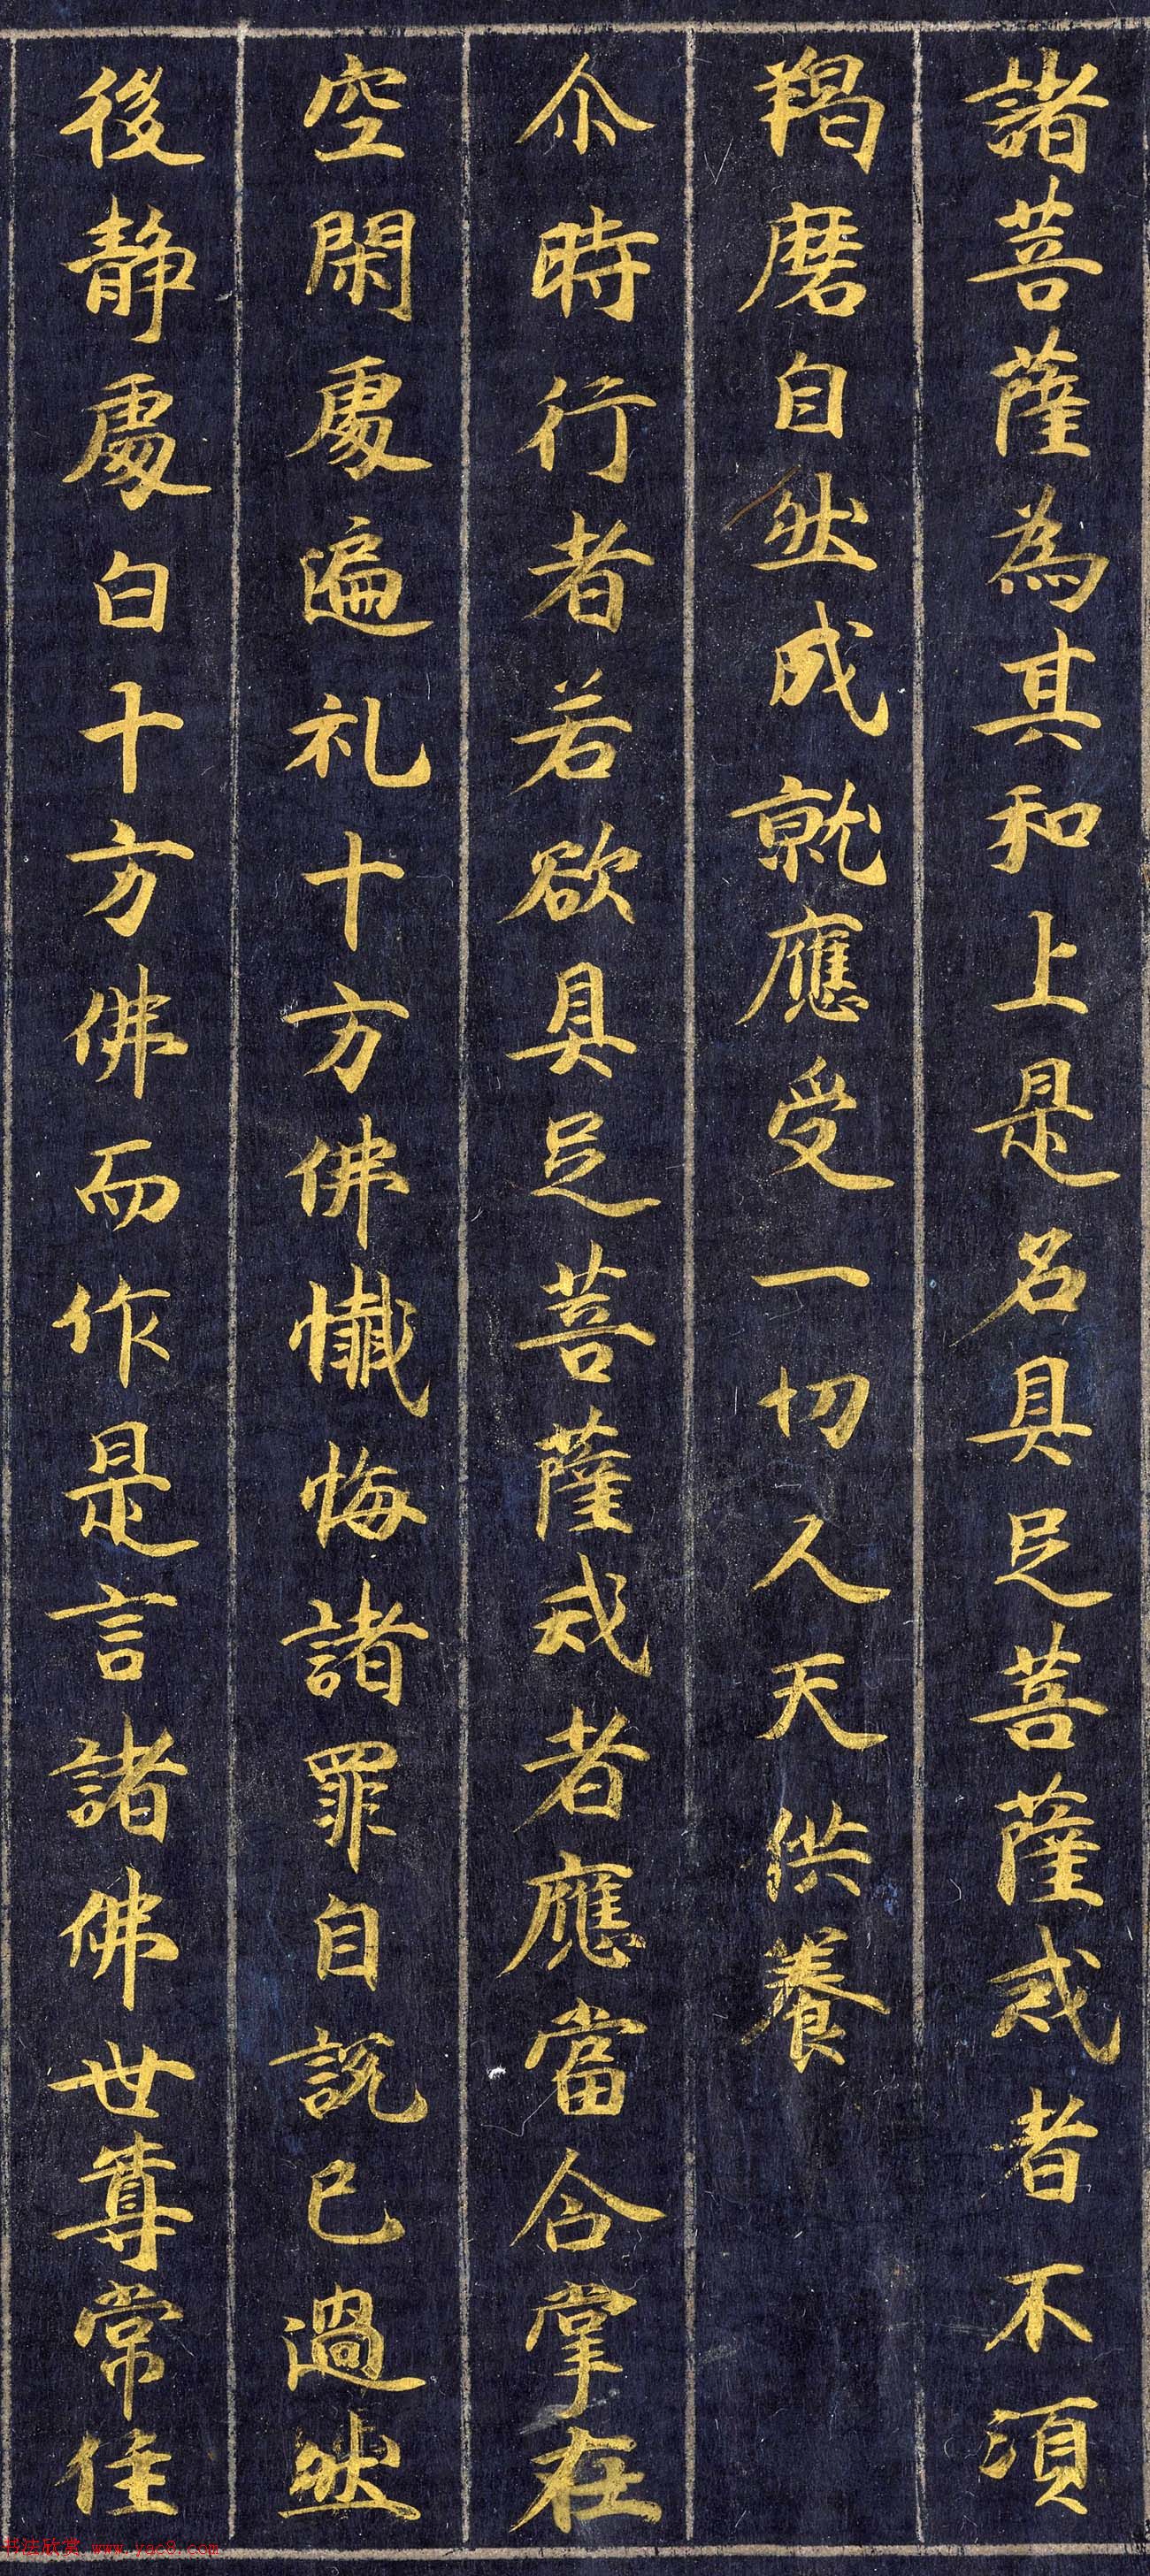 諸菩薩為其和上是名具足菩薩戒者不須
羯磨自然成就應受一切人天供養
尒時行者若欲具足菩薩戒者應當合掌在
空閑處遍礼十方佛懺悔諸罪自説已過然
後静處白十方佛而作是言諸佛世尊常住
书法欣赏 www.yac8.com